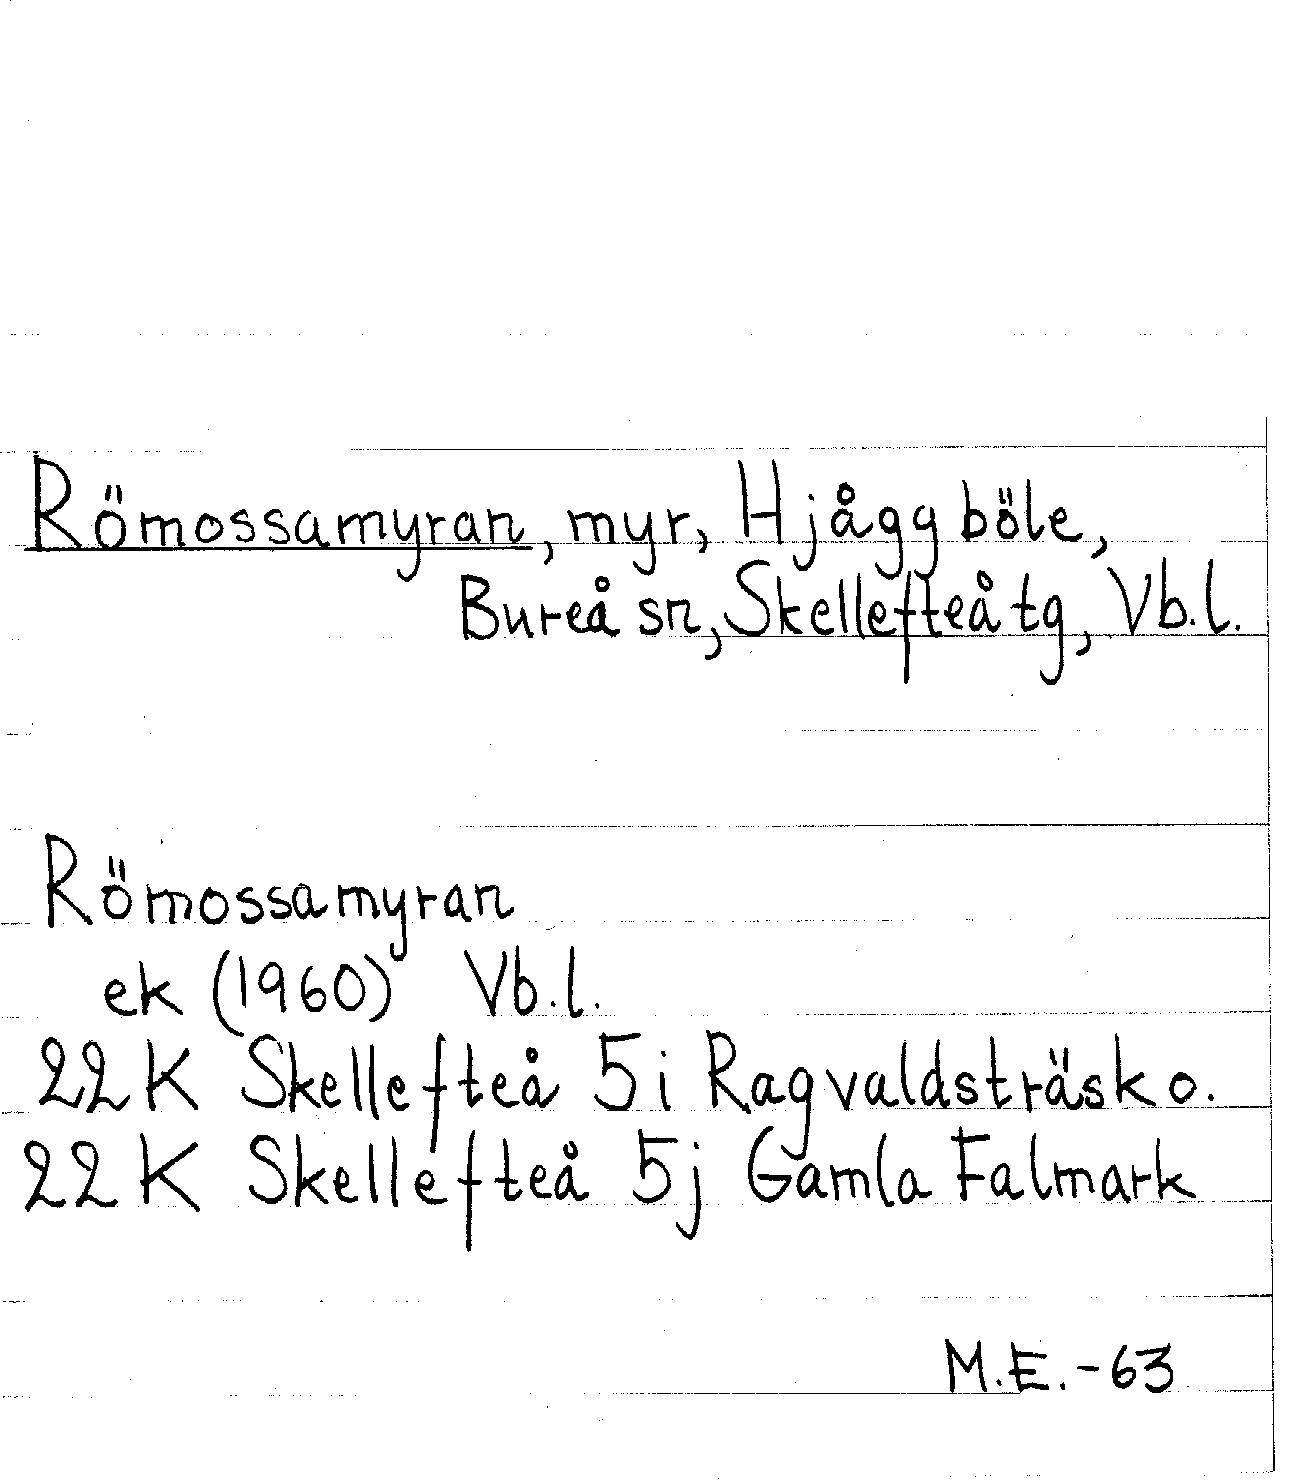 Römossamyran, myr, Hjåggböle,
Bureå sn, Skellefteå tg, Vb.l.
Römossamyran
ek (1960) Vb.l.
22K Skellefteå 5i Ragvaldsträsk o.
22K Skellefteå 5j Gamla Falmark
M.E.-63